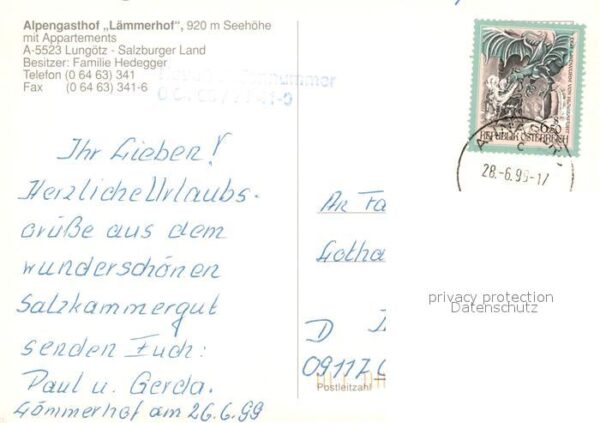 Alpengasthof „Lämmerhof", 920 m Seehöhe
mit Appartements
A-5523 Lungötz - Salzburger Land
Besitzer: Familie Hedegger
Telefon (0 64 63) 341
Fax (0 64 63) 341-6
nummer
6.50
REPUBLIK ÖSTERREICH
28.-6.99-17
Ihr Lieben!
Herzliche Urlaubs-
grüße aus dem
wunderschönen
Salzkammergut
senden Euch:
Paul u. Gerda.
Lömmerhof am 26.6.99
An Fa
Gotha
D
09117
Postleitzahl
privacy protection
Datenschutz